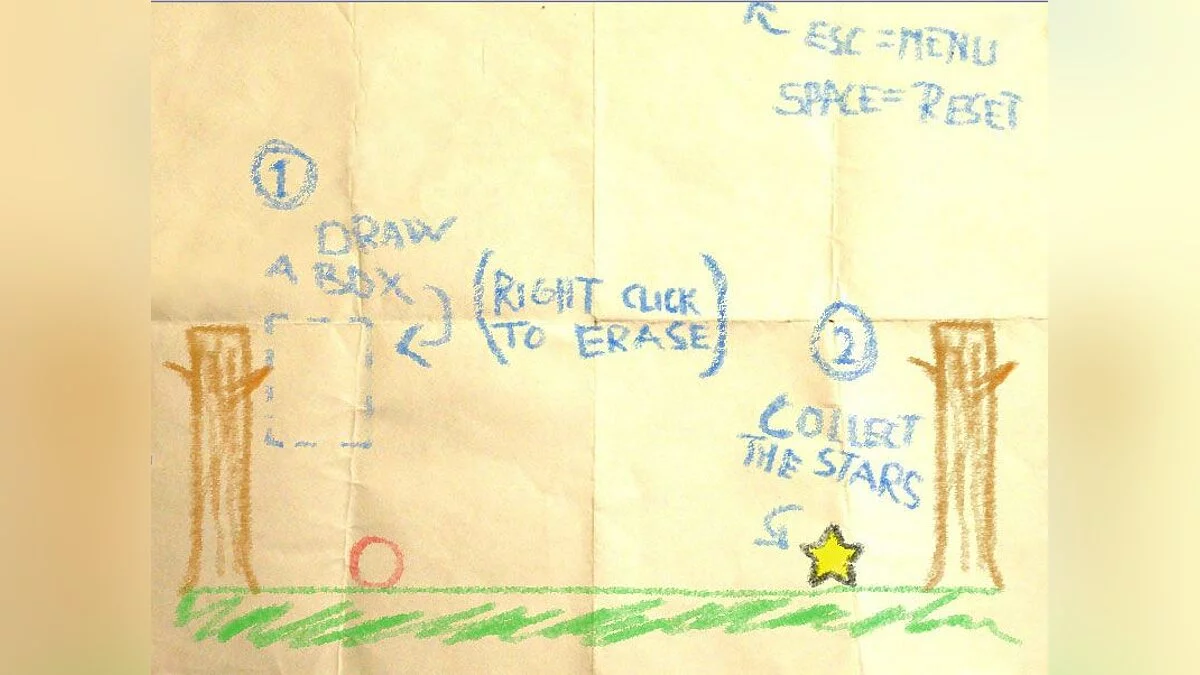 ESC = MENU
SPACE = RESET
1
DRAW
A BOX
(RIGHT CLICK
TO ERASE)
2
COLLECT
THE STARS